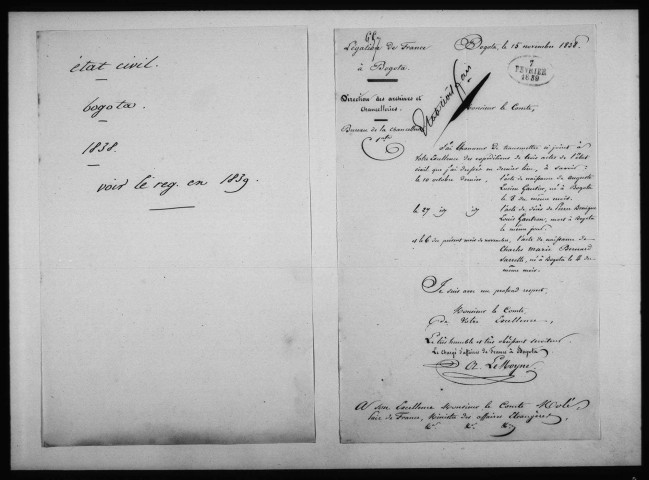 état civil.
bogota.
1838.
voir le reg. en 1839.
Légation de France
à Bogota.
Direction des archives et
Chancelleries.
Bureau de la Chancellerie
Bogota, le 15 novembre 1838.
7
FÉVRIER
1839
Monsieur le Comte,
J'ai l'honneur de transmettre ci joint à
Votre Excellence des expéditions de trois actes de l'état
civil que j'ai dressés en dernier lieu, à savoir :
le 10 octobre dernier, l'acte de naissance de Auguste
Lucien Gautier, né à Bogota
le 8 du même mois.
le 27 l'acte de décès de Pierre
Louis Gautron, mort à Bogota
le même jour.
et le 6 du présent mois de novembre, l'acte de naissance de
Charles Marie Bernard
né à Bogota le 4 du
même mois.
Je suis avec un profond respect,
Monsieur le Comte,
de Votre Excellence,
Le très humble et très obéissant serviteur
Le chargé d'affaires de France à Bogota
A. LeMoyne
A Son Excellence Monsieur le Comte Molé,
Pair de France, Ministre des affaires Etrangères